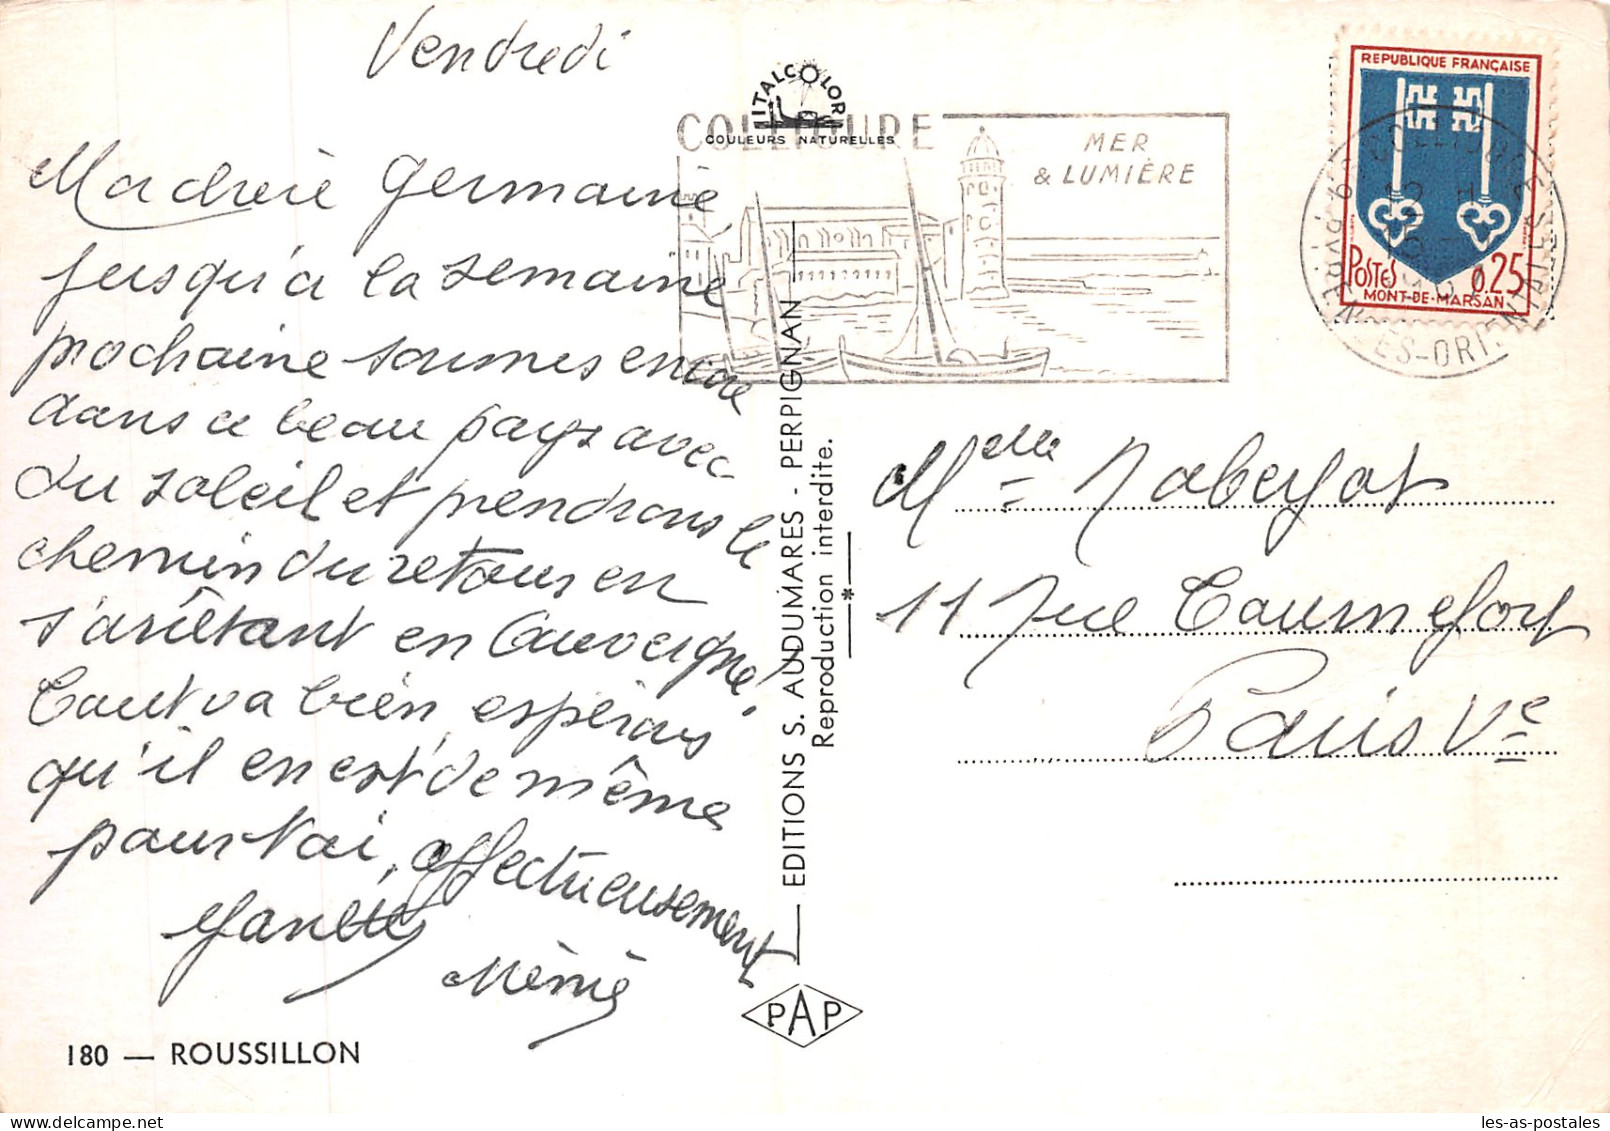 Vendredi
Ma chère Germaine
jusqu'à la semaine
prochaine sommes encore
dans ce beau pays avec
du soleil et prendrons le
chemin du retour en
s'arrêtant en Auvergne!
Tout va bien, espérons
qu'il en est de même
pour toi, affectueusement
Mémé
180 — ROUSSILLON
ITALCOLOR
COULEURS NATURELLES
COLLIOURE
MER
& LUMIÈRE
EDITIONS S. AUDUMARES - PERPIGNAN
Reproduction interdite.
PAP
REPUBLIQUE FRANÇAISE
POSTES 0.25
MONT-DE-MARSAN
COLLIOURE
PYRENEES-ORIENTALES
Melle
11 rue Tournefort
Paris Ve
les-as-postales